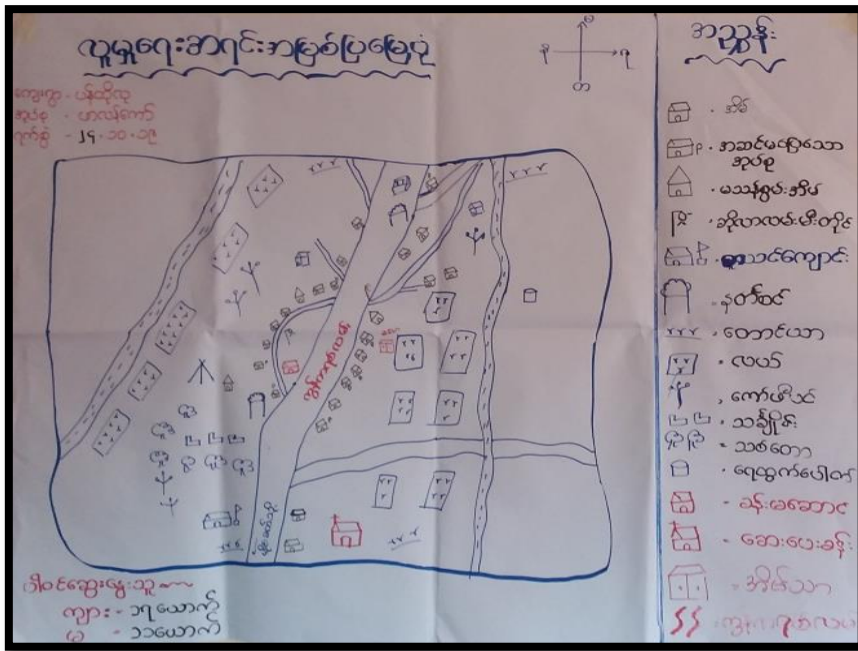 လူမှုရေးဆရင်းအမြစ်ပြမြေပုံ
ကျေးရွာ - ပန်ထိုလု
အုပ်စု - ဟာလန်ကော်
ရက်စွဲ - ၂၄.၁၀.၁၉
အညွှန်း
- အိမ်
- အဆင်မပြေသော
အုပ်စု
- မသန်စွမ်းအိမ်
- ဆိုလာလမ်းမီးတိုင်
- စာသင်ကျောင်း
- နတ်စင်
- တောင်ယာ
- လယ်
- ကော်ဖီပင်
- သင်္ချိုင်း
- သစ်တော
- ရေထွက်ပေါက်
- ခန်းမဆောင်
- ဆေးပေးခန်း
- အိမ်သာ
ပါဝင်ဆွေးနွေးသူ
ကျား - ၁၇ယောက်
မ - ၁၁ယောက်